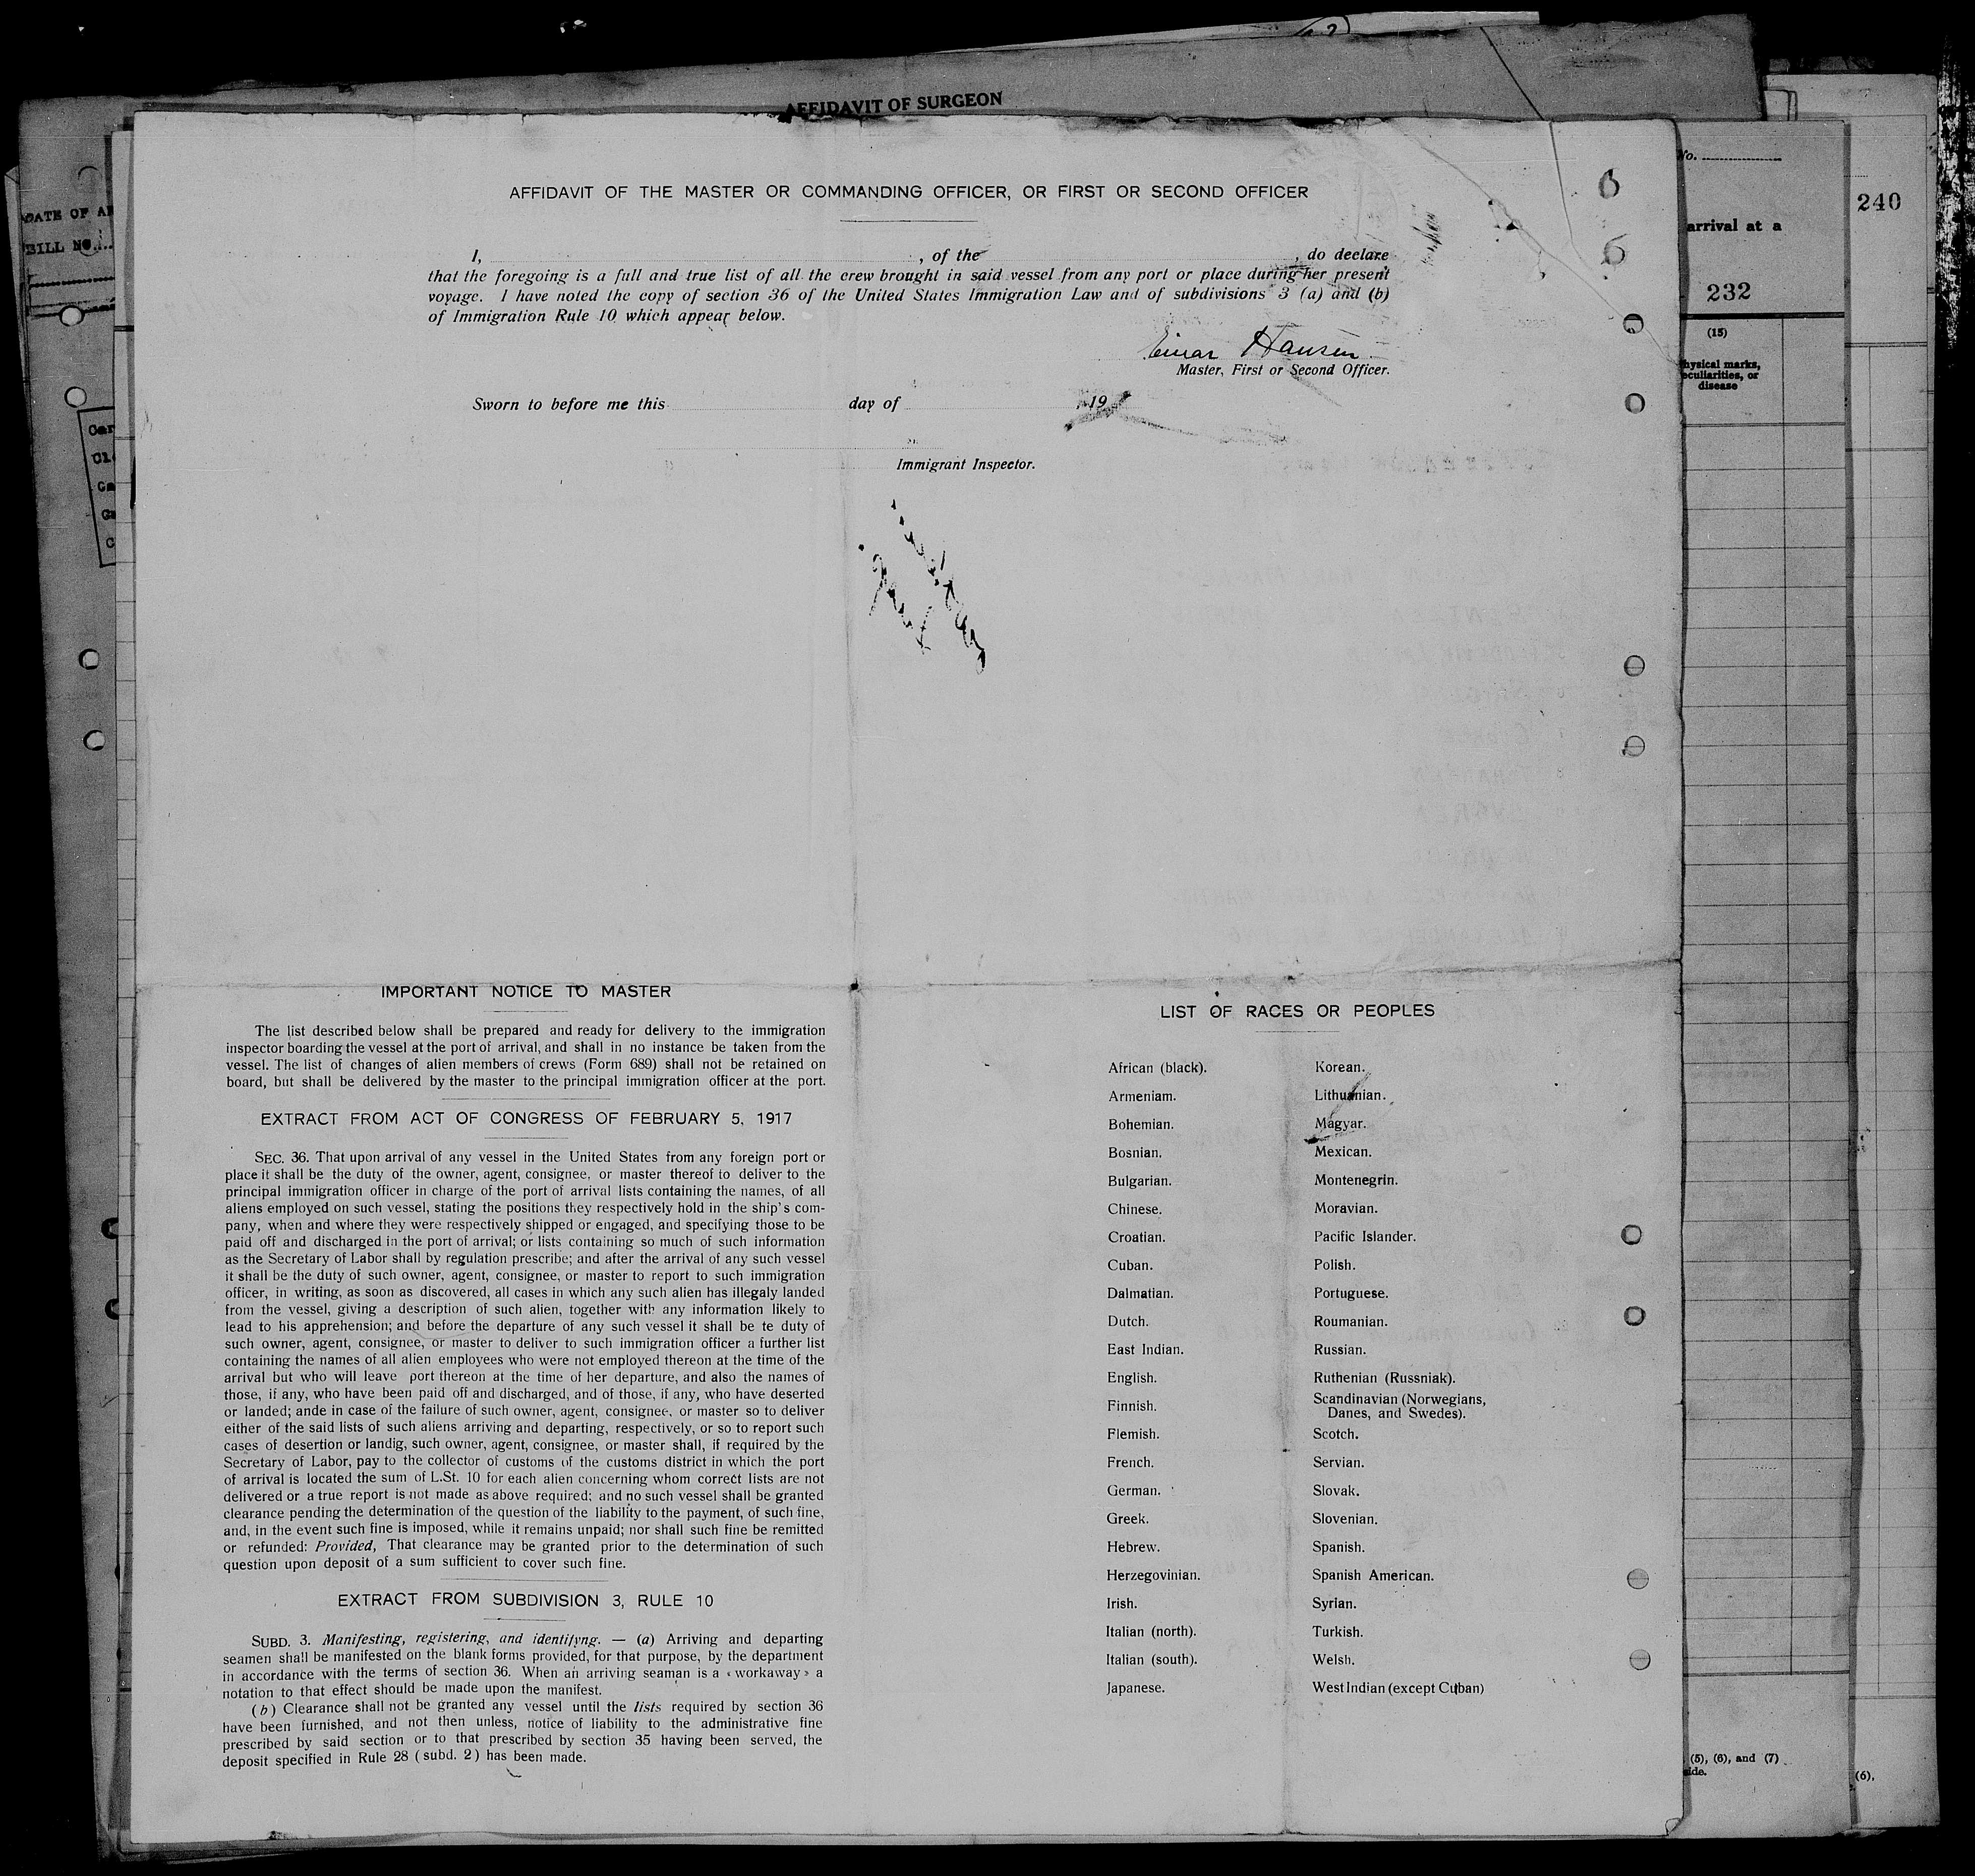 AFFIDAVIT OF SURGEON
DATE OF
BILL NO.
No.
240
arrival at a
232
(15)
physical marks,
peculiarities, or
disease
AFFIDAVIT OF THE MASTER OR COMMANDING OFFICER, OR FIRST OR SECOND OFFICER
6
6
I, , of the , do declare
that the foregoing is a full and true list of all the crew brought in said vessel from any port or place during her present
voyage. I have noted the copy of section 36 of the United States Immigration Law and of subdivisions 3 (a) and (b)
of Immigration Rule 10 which appear below.
Einar Hansen
Master, First or Second Officer.
Sworn to before me this day of , 19
Immigrant Inspector.
IMPORTANT NOTICE TO MASTER
The list described below shall be prepared and ready for delivery to the immigration
inspector boarding the vessel at the port of arrival, and shall in no instance be taken from the
vessel. The list of changes of alien members of crews (Form 689) shall not be retained on
board, but shall be delivered by the master to the principal immigration officer at the port.
EXTRACT FROM ACT OF CONGRESS OF FEBRUARY 5, 1917
SEC. 36. That upon arrival of any vessel in the United States from any foreign port or
place it shall be the duty of the owner, agent, consignee, or master thereof to deliver to the
principal immigration officer in charge of the port of arrival lists containing the names, of all
aliens employed on such vessel, stating the positions they respectively hold in the ship's com-
pany, when and where they were respectively shipped or engaged, and specifying those to be
paid off and discharged in the port of arrival; or lists containing so much of such information
as the Secretary of Labor shall by regulation prescribe; and after the arrival of any such vessel
it shall be the duty of such owner, agent, consignee, or master to report to such immigration
officer, in writing, as soon as discovered, all cases in which any such alien has illegaly landed
from the vessel, giving a description of such alien, together with any information likely to
lead to his apprehension; and before the departure of any such vessel it shall be te duty of
such owner, agent, consignee, or master to deliver to such immigration officer a further list
containing the names of all alien employees who were not employed thereon at the time of the
arrival but who will leave port thereon at the time of her departure, and also the names of
those, if any, who have been paid off and discharged, and of those, if any, who have deserted
or landed; ande in case of the failure of such owner, agent, consignee, or master so to deliver
either of the said lists of such aliens arriving and departing, respectively, or so to report such
cases of desertion or landig, such owner, agent, consignee, or master shall, if required by the
Secretary of Labor, pay to the collector of customs of the customs district in which the port
of arrival is located the sum of L.St. 10 for each alien concerning whom correct lists are not
delivered or a true report is not made as above required; and no such vessel shall be granted
clearance pending the determination of the question of the liability to the payment, of such fine,
and, in the event such fine is imposed, while it remains unpaid; nor shall such fine be remitted
or refunded: Provided, That clearance may be granted prior to the determination of such
question upon deposit of a sum sufficient to cover such fine.
EXTRACT FROM SUBDIVISION 3, RULE 10
SUBD. 3. Manifesting, registering, and identifyng. — (a) Arriving and departing
seamen shall be manifested on the blank forms provided, for that purpose, by the department
in accordance with the terms of section 36. When an arriving seaman is a « workaway » a
notation to that effect should be made upon the manifest.
(b) Clearance shall not be granted any vessel until the lists required by section 36
have been furnished, and not then unless, notice of liability to the administrative fine
prescribed by said section or to that prescribed by section 35 having been served, the
deposit specified in Rule 28 (subd. 2) has been made.
LIST OF RACES OR PEOPLES
African (black).
Armeniam.
Bohemian.
Bosnian.
Bulgarian.
Chinese.
Croatian.
Cuban.
Dalmatian.
Dutch.
East Indian.
English.
Finnish.
Flemish.
French.
German.
Greek.
Hebrew.
Herzegovinian.
Irish.
Italian (north).
Italian (south).
Japanese.
Korean.
Lithuanian.
Magyar.
Mexican.
Montenegrin.
Moravian.
Pacific Islander.
Polish.
Portuguese.
Roumanian.
Russian.
Ruthenian (Russniak).
Scandinavian (Norwegians,
Danes, and Swedes).
Scotch.
Servian.
Slovak.
Slovenian.
Spanish.
Spanish American.
Syrian.
Turkish.
Welsh.
West Indian (except Cuban)
(5), (6), and (7)
side.
(6),